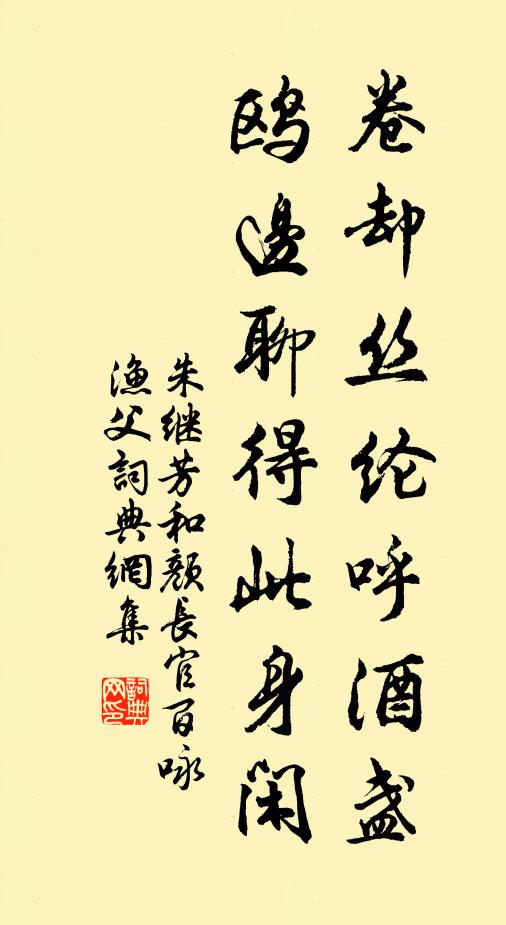 卷却丝纶呼酒盏
鸥邊聊得此身闲
朱继芳和颜長官百咏
漁父詞典網集
詞典网印